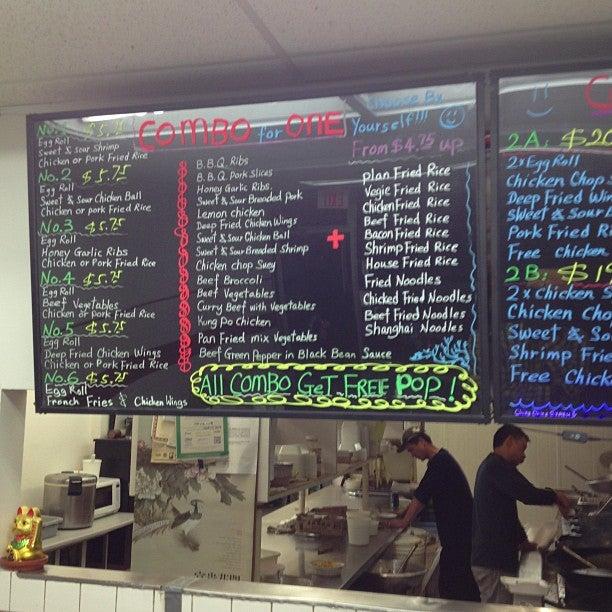 COMBO for ONE
Choose By
Yourself!!!
From $4.75 up
No.1 $5.75
Egg Roll
Sweet & Sour Shrimp
Chicken or Pork Fried Rice
No.2 $5.75
Egg Roll
Sweet & Sour Chicken Ball
Chicken or pork Fried Rice
No.3 $5.75
Egg Roll
Honey Garlic Ribs
Chicken or Pork Fried Rice
No.4 $5.75
Egg Roll
Beef Vegetables
Chicken or pork Fried Rice
No.5 $5.75
Egg Roll
Deep Fried Chicken Wings
Chicken or Pork Fried Rice
No.6 $5.75
Egg Roll
French Fries & Chicken Wings
B.B.Q. Ribs
B.B.Q. Pork Slices
Honey Garlic Ribs
Sweet & Sour Breaded Pork
Lemon chicken
Deep Fried Chicken Wings
Sweet & Sour Chicken Ball
Sweet & Sour Breaded Shrimp
Chicken chop Suey
Beef Broccoli
Beef Vegetables
Curry Beef with Vegetables
Kung Po Chicken
Pan Fried mix Vegetables
Beef Green Pepper in Black Bean Sauce
+
plan Fried Rice
Vegie Fried Rice
Chicken Fried Rice
Beef Fried Rice
Bacon Fried Rice
Shrimp Fried Rice
House Fried Rice
Fried Noodles
Chicked Fried Noodles
Beef Fried Noodles
Shanghai Noodles
All COMBO GeT FREE POP!
2A: $20
2x Egg Roll
Chicken Chop S
Deep Fried Win
Sweet & Sour
Pork Fried R
Free Chicken
2B: $1
2x chicken S
Chicken Cho
Sweet & So
Shrimp Fri
Free Chick